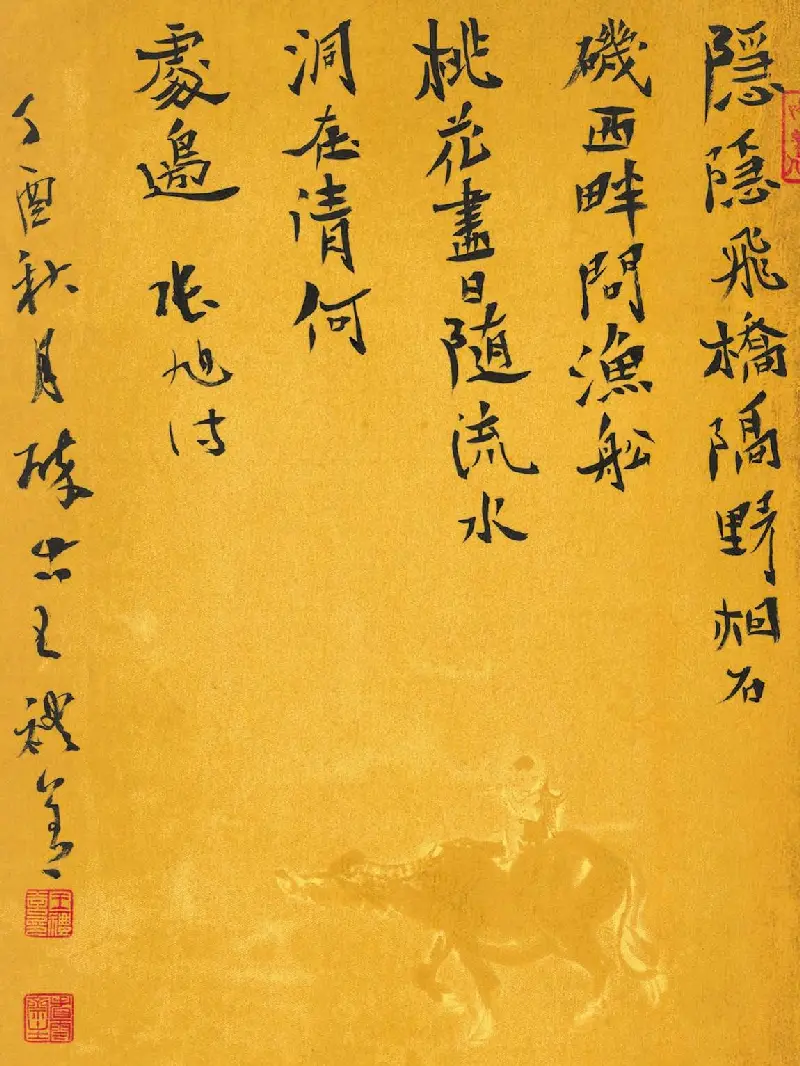 隱隱飛橋隔野烟石
磯西畔問漁舩
桃花盡日随流水
洞在清何
處邊 張旭诗
丁酉秋月